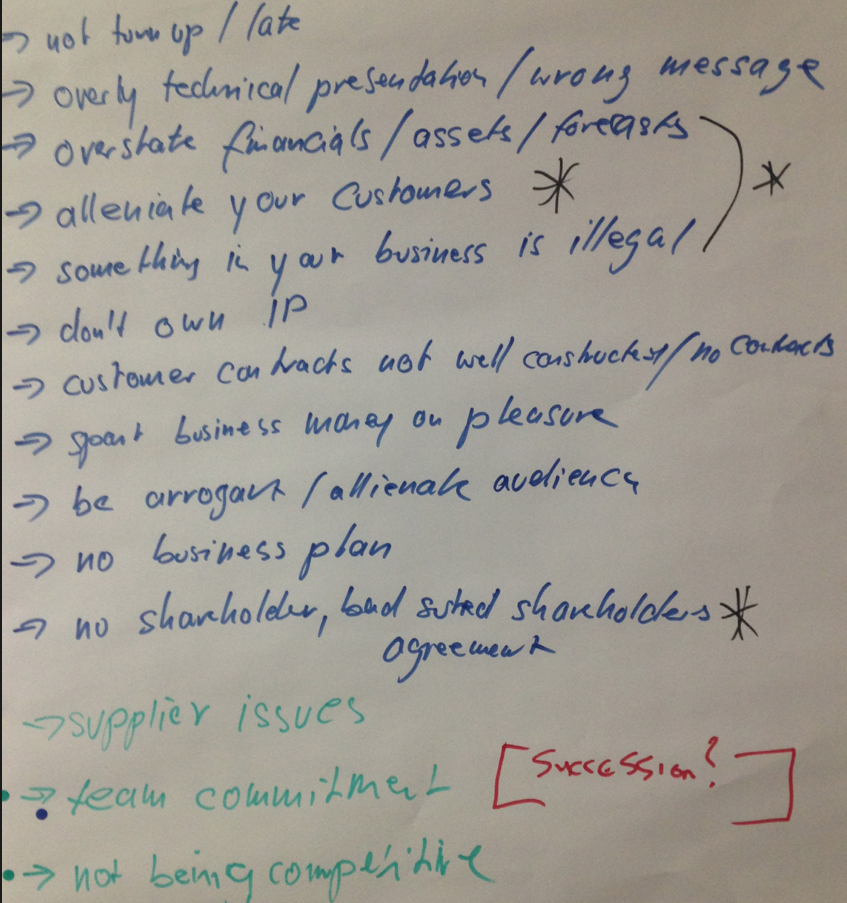 → not turn up / late
→ overly technical presentation / wrong message
→ overstate financials / assets / forecasts
→ alleniate your customers *
→ something in your business is illegal *
→ don't own IP
→ customer contracts not well constructed / no contracts
→ spent business money on pleasure
→ be arrogant / allienate audience
→ no business plan
→ no shareholder, bad suted shareholders *
agreement
→ supplier issues
→ team commitment [Succession?]
→ not being competitive